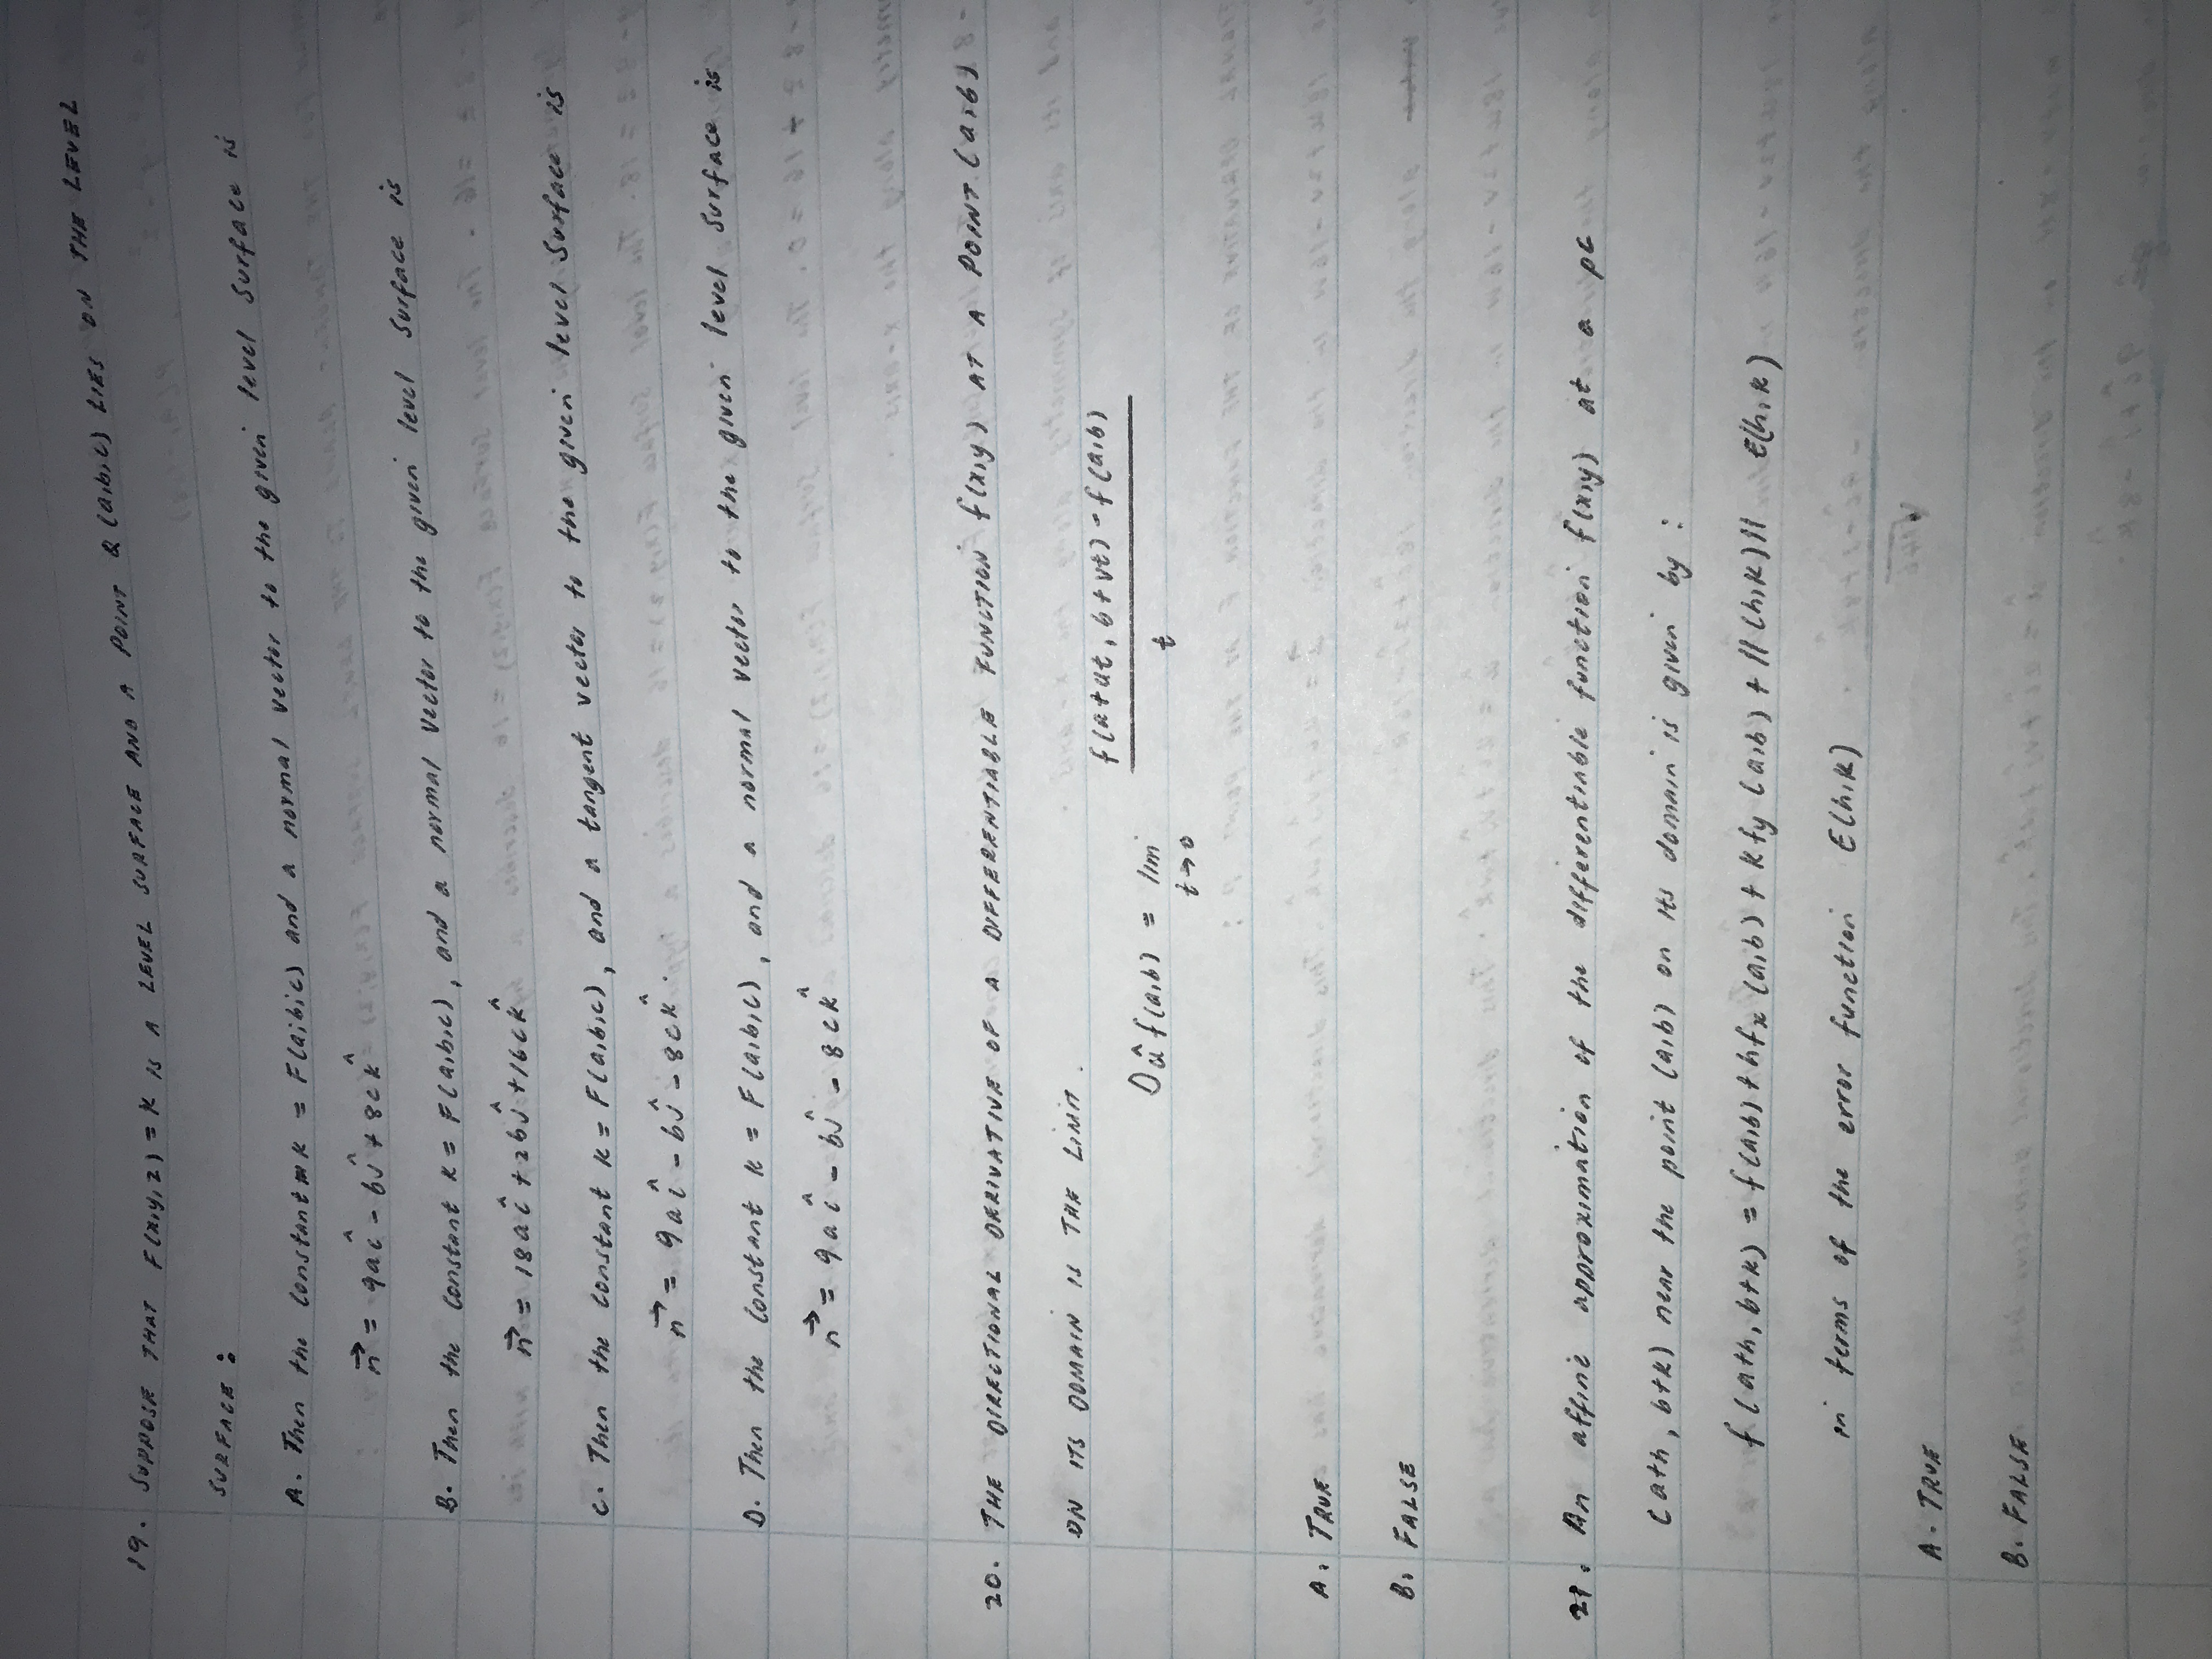 19. SUPPOSE THAT F(x,y,z) = K IS A LEVEL SURFACE AND A POINT Q (a,b,c) LIES ON THE LEVEL
SURFACE:
A. Then the constant K = F(a,b,c) and a normal vector to the given level surface is
n⃗ = 9aî - bĵ + 8ck̂
B. Then the constant K = F(a,b,c), and a normal vector to the given level surface is
n⃗ = 18aî + 2bĵ + 16ck̂
C. Then the constant K = F(a,b,c), and a tangent vector to the given level surface is
n⃗ = 9aî - bĵ - 8ck̂.
D. Then the constant K = F(a,b,c), and a normal vector to the given level surface is
n⃗ = 9aî - bĵ - 8ck̂
20. THE DIRECTIONAL DERIVATIVE OF A DIFFERENTIABLE FUNCTION f(x,y) AT A POINT (a,b)
ON ITS DOMAIN IS THE LIMIT.
Dû f(a,b) = lim t→0 f(a+ut, b+vt) - f(a,b) / t
A. TRUE
B. FALSE
21. An affine approximation of the differentiable function f(x,y) at a pc
(a+h, b+k) near the point (a,b) on its domain is given by:
f(a+h, b+k) = f(a,b) + hfx(a,b) + kfy(a,b) + ||(h,k)|| E(h,k)
in terms of the error function E(h,k)
A. TRUE
B. FALSE